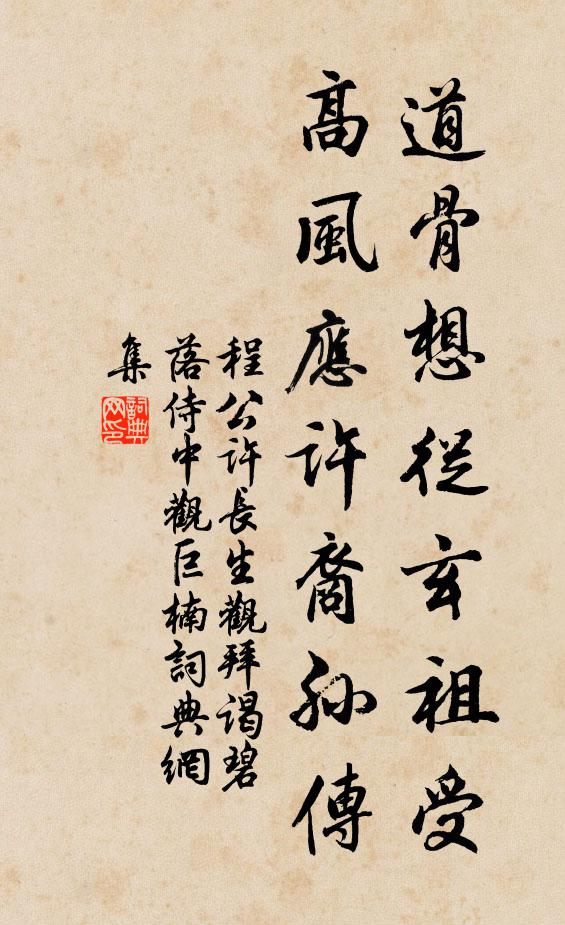 道骨想從玄祖受
高風應許裔孫傳
程公許長生觀拜謁碧
落侍中觀巨楠詞典網
集
詞典網印